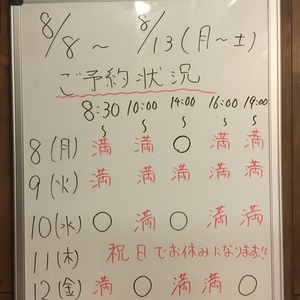 8/8 ～ 8/13 (月～土)
ご予約状況
8:30 10:00 14:00 16:00 19:00
～ ～ ～ ～ ～
8(月) 満 満 ○ 満 満
9(火) 満 満 満 満 満
10(水) ○ 満 ○ 満 満
11(木) 祝日でお休みになります!!
12(金) 満 ○ 満 満 ○